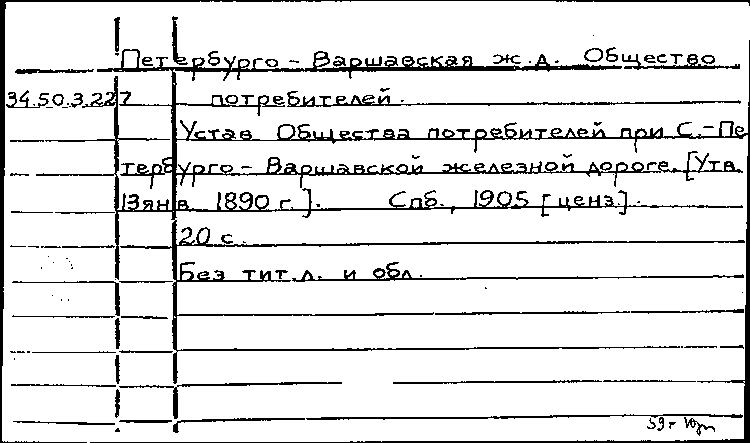 Петербурго - Варшавская ж.д. Общество
34.50.3.227 потребителей.
Устав Общества потребителей при С.-Пе
тербурго - Варшавской железной дороге. [Утв.
13 янв. 1890 г.]. Спб., 1905 [ценз].
20 с.
Без тит.л. и обл.
59г